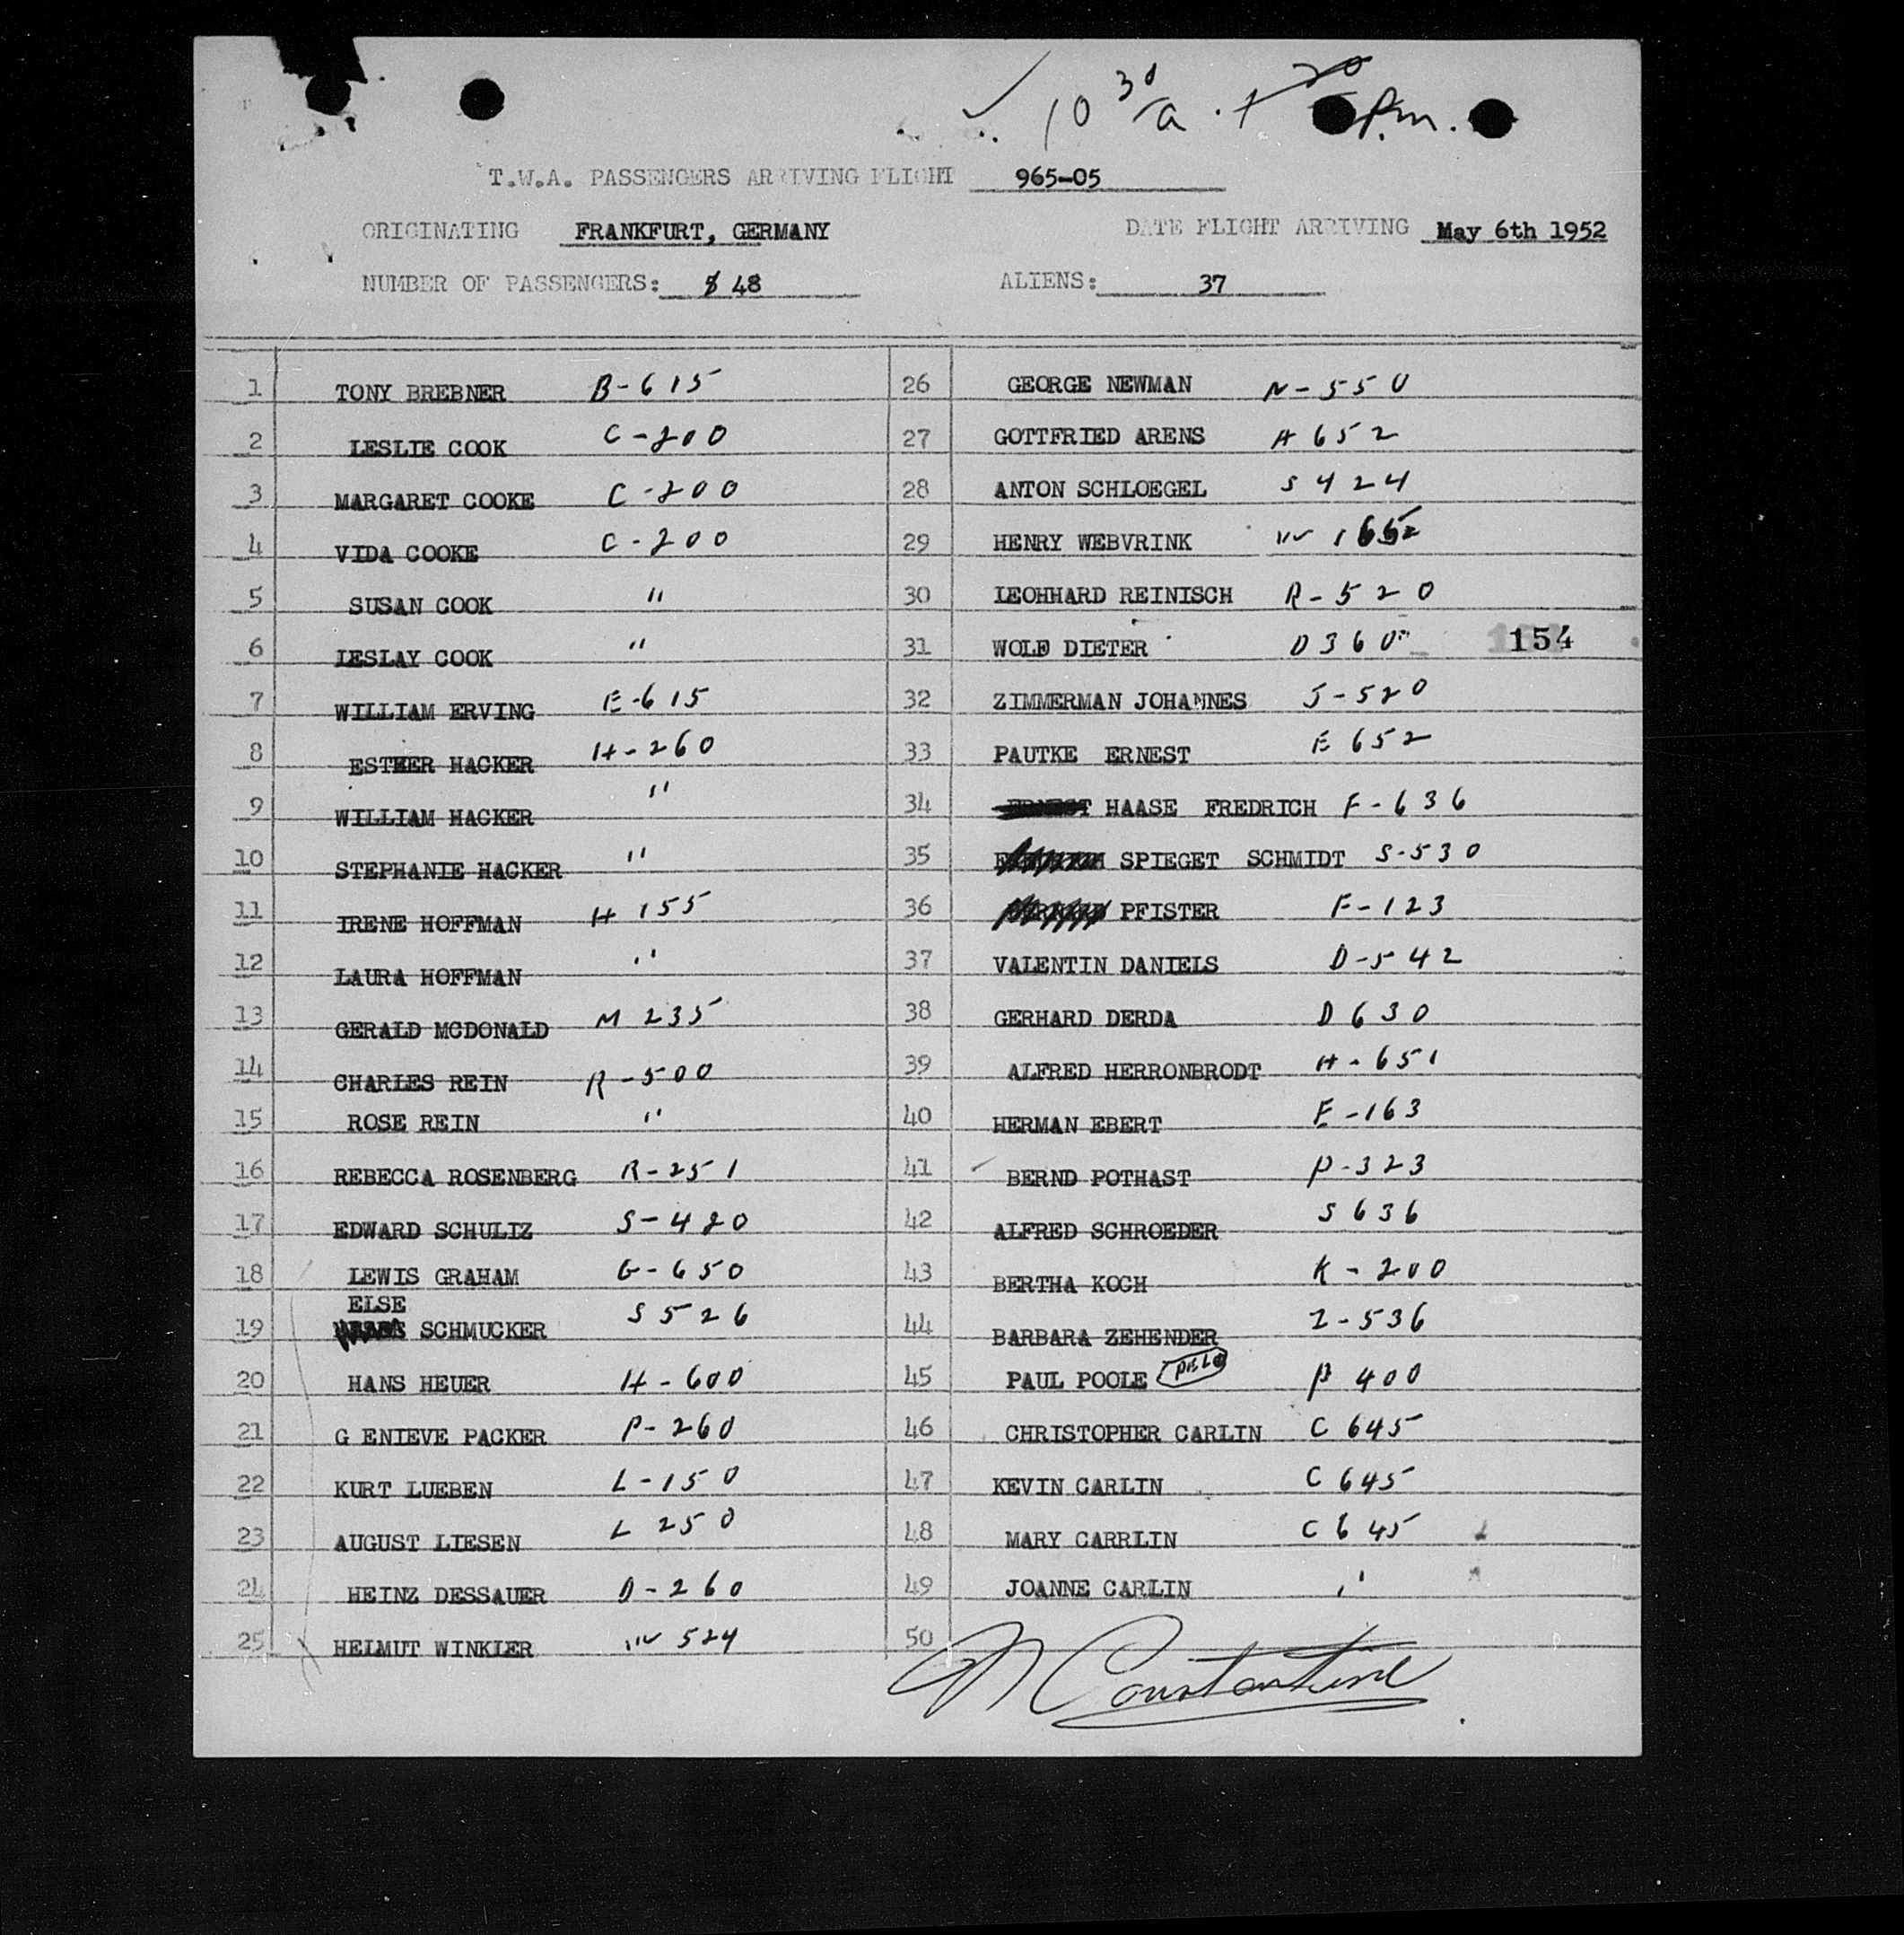 10 30/a
P.m.
T.W.A. PASSENGERS ARRIVING FLIGHT 965-05
ORIGINATING FRANKFURT, GERMANY DATE FLIGHT ARRIVING May 6th 1952
NUMBER OF PASSENGERS: 48 ALIENS: 37
1 TONY BREBNER B-615
2 LESLIE COOK C-200
3 MARGARET COOKE C-200
4 VIDA COOKE C-200
5 SUSAN COOK "
6 LESLAY COOK "
7 WILLIAM ERVING E-615
8 ESTHER HACKER H-260
9 WILLIAM HACKER "
10 STEPHANIE HACKER "
11 IRENE HOFFMAN H 155
12 LAURA HOFFMAN "
13 GERALD MCDONALD M 235
14 CHARLES REIN R-500
15 ROSE REIN "
16 REBECCA ROSENBERG R-251
17 EDWARD SCHULTZ S-420
18 LEWIS GRAHAM G-650
ELSE
19 SCHMUCKER S 526
20 HANS HEUER H-600
21 G ENIEVE PACKER P-260
22 KURT LUEBEN L-150
23 AUGUST LIESEN L 250
24 HEINZ DESSAUER D-260
25 HELMUT WINKLER W 524
26 GEORGE NEWMAN N-550
27 GOTTFRIED ARENS A 652
28 ANTON SCHLOEGEL S 424
29 HENRY WEBVRINK W 1652
30 LEOHHARD REINISCH R-520
31 WOLF DIETER D 360 154
32 ZIMMERMAN JOHANNES J-520
33 PAUTKE ERNEST E 652
34 HAASE FREDRICH F-636
35 SPIEGET SCHMIDT S-530
36 PFISTER F-123
37 VALENTIN DANIELS D-542
38 GERHARD DERDA D 630
39 ALFRED HERRONBRODT H-651
40 HERMAN EBERT E-163
41 BERND POTHAST P-323
42 ALFRED SCHROEDER S 636
43 BERTHA KOCH K-200
44 BARBARA ZEHENDER Z-536
45 PAUL POOLE P 400
46 CHRISTOPHER CARLIN C 645
47 KEVIN CARLIN C 645
48 MARY CARRLIN C 645
49 JOANNE CARLIN "
50
M Constantine